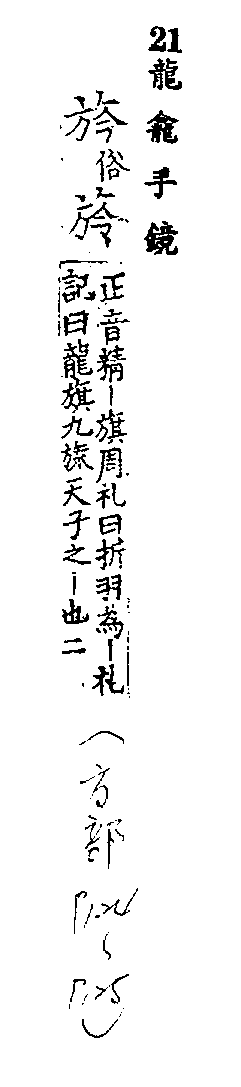 21龍龕手鏡
㫋俗旍正音精〡旗周礼曰折羽為〡礼
記曰龍旗九旒天子之〡也二
(方部 P.124、P.125)